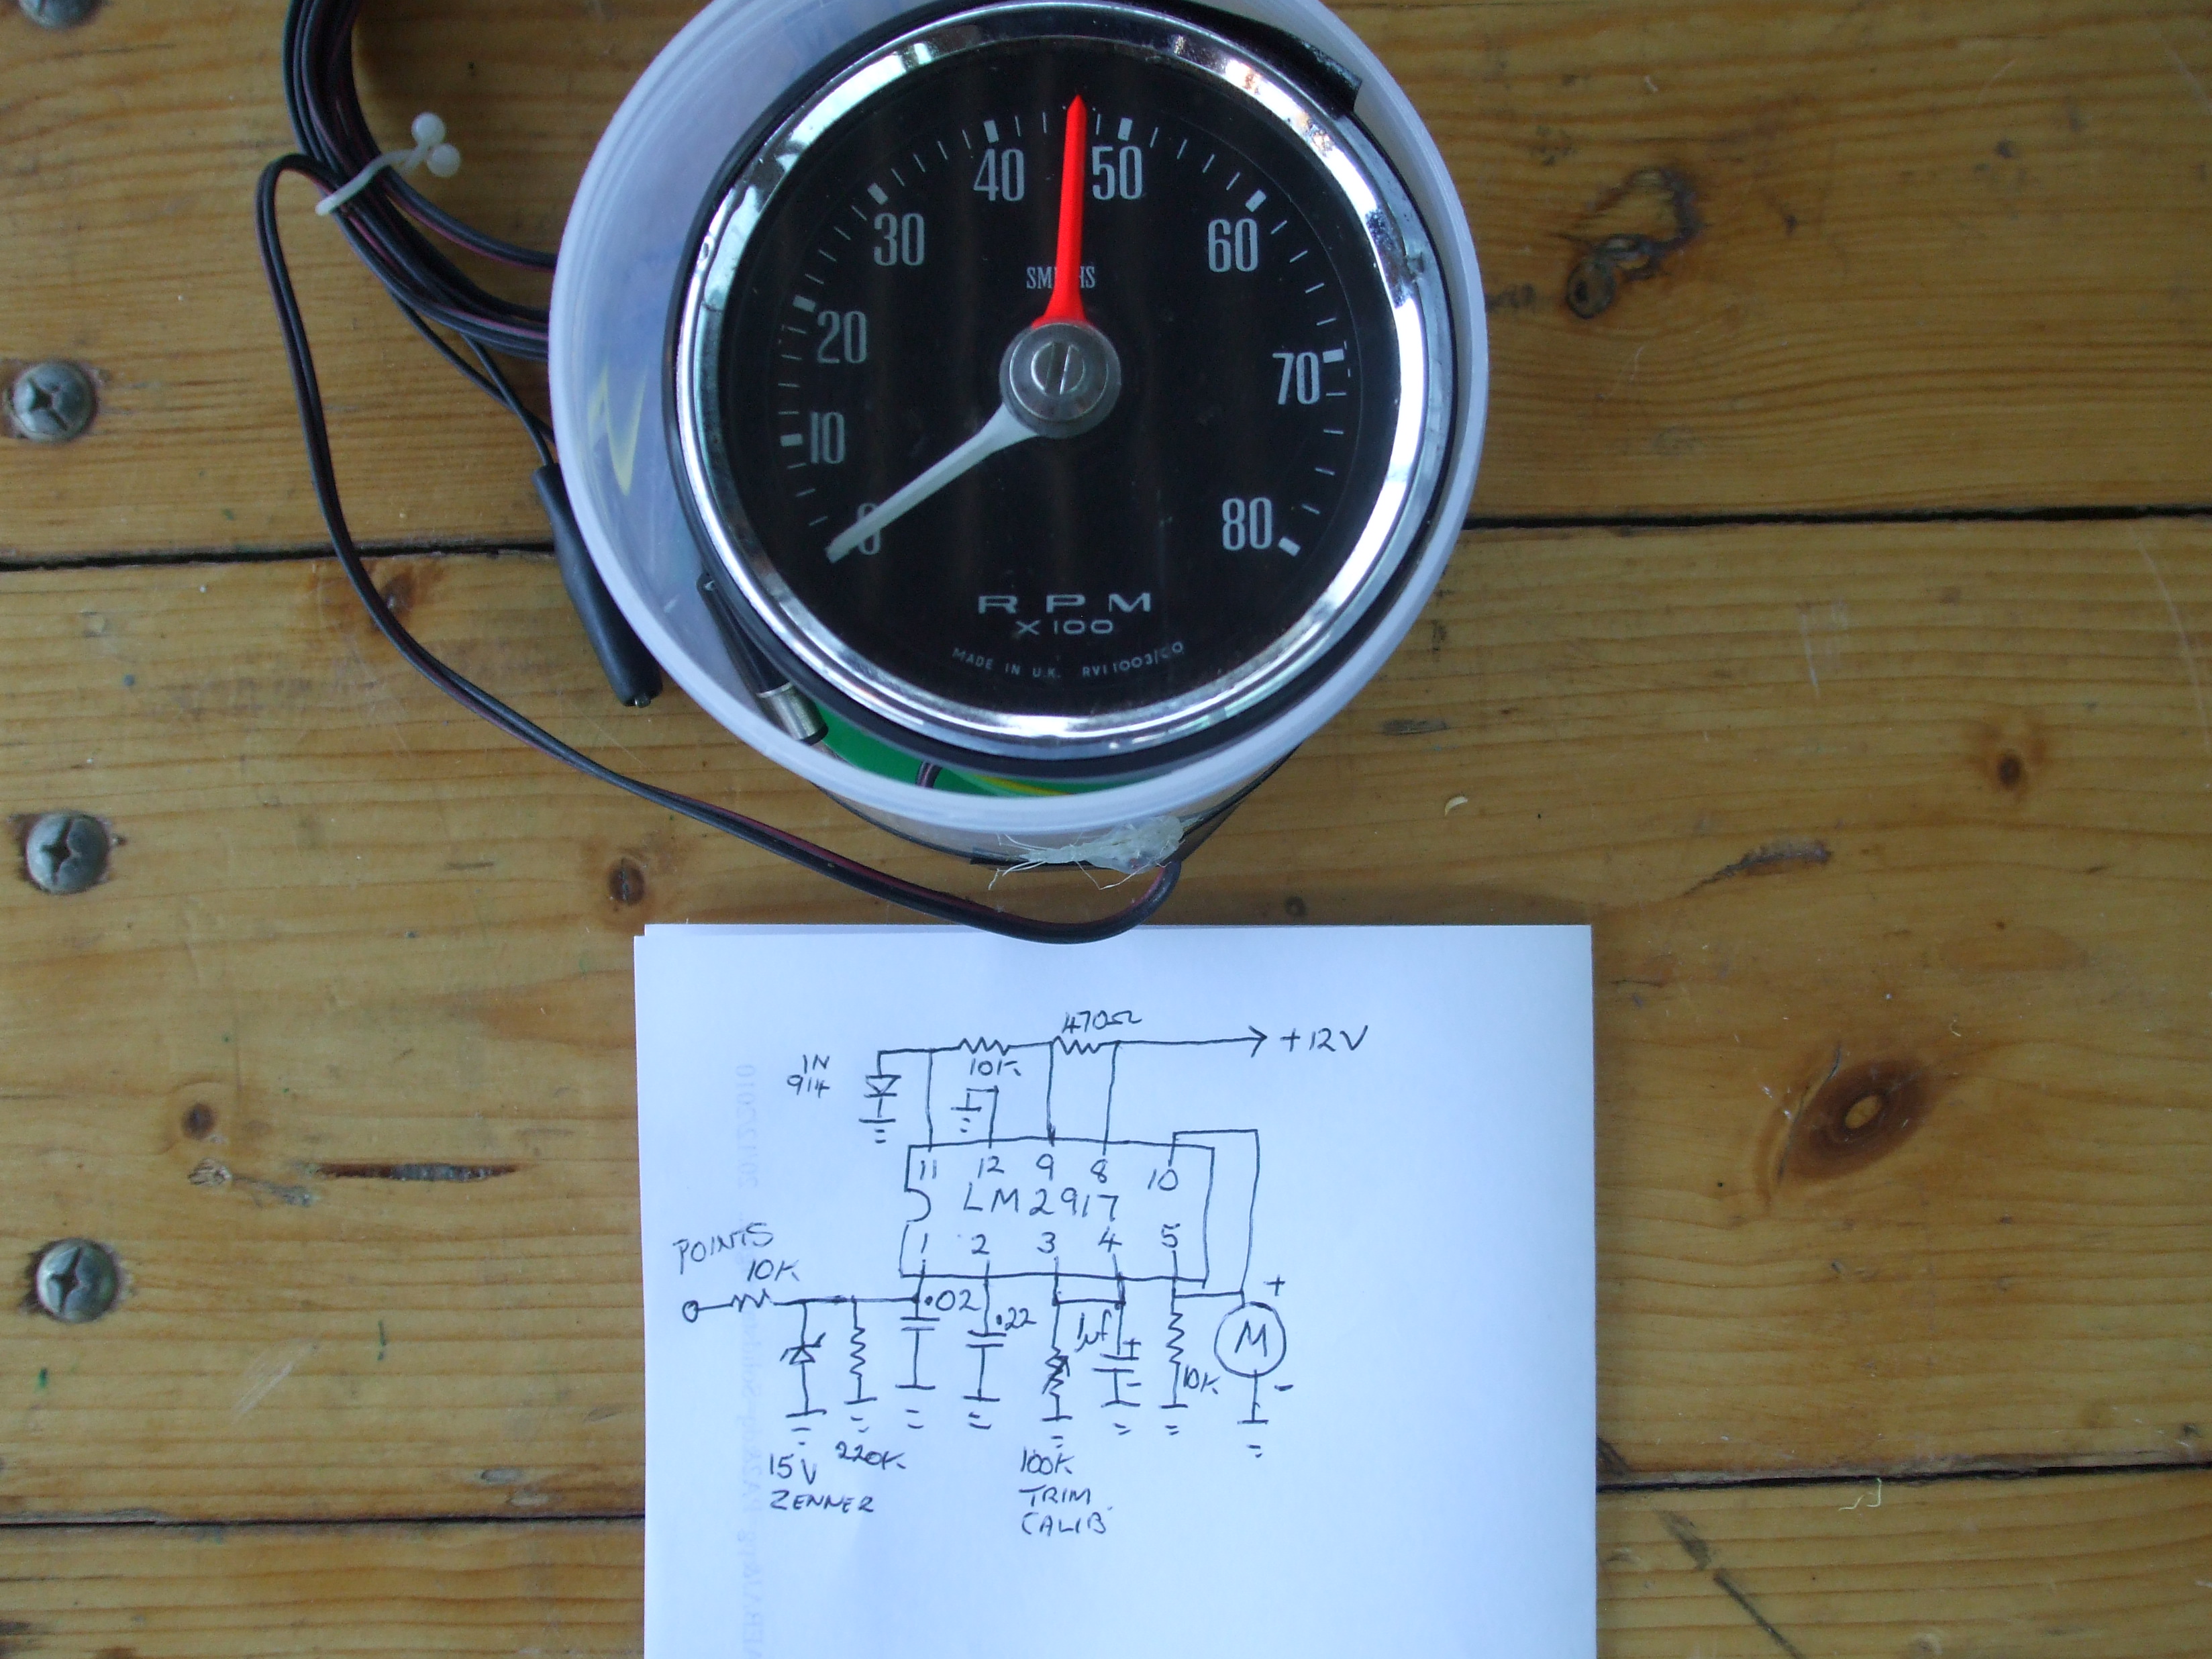 40 50
30 60
SM HS
20 70
10
0 80
RPM
X 100
MADE IN U.K. RVI 1003/
470Ω
+12V
1N
914
10K
11 12 9 8 10
LM2917
1 2 3 4 5
POINTS
10K
.02
.22
1µf
+
-
10K
+
M
-
15V
ZENNER
220K
100K
TRIM
CALIB